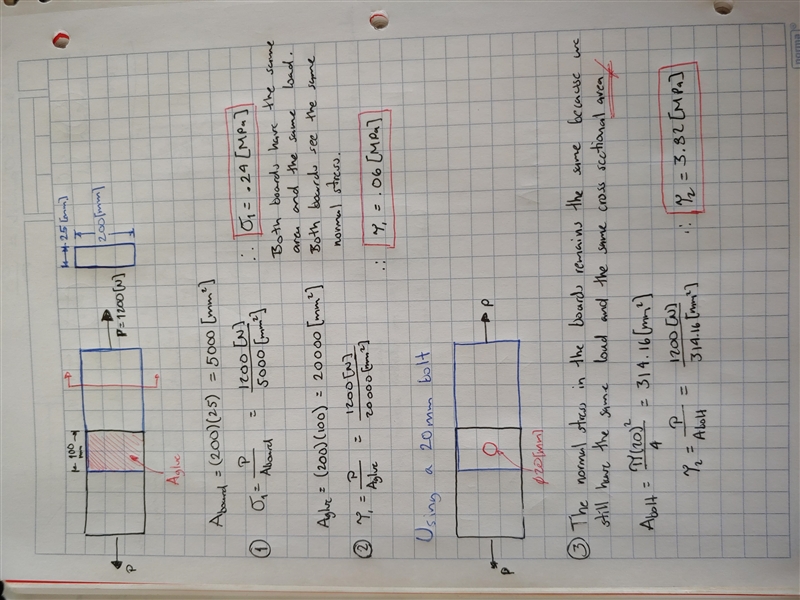 25 [mm]
200 [mm]
100
mm
P
P = 1200 [N]
Aglue
Aboard = (200)(25) = 5000 [mm²]
① σ₁ = P / Aboard = 1200 [N] / 5000 [mm²] ∴ σ₁ = .24 [MPa]
Both boards have the same
area and the same load.
Both boards see the same
normal stress.
Aglue = (200)(100) = 20000 [mm²]
② τ₁ = P / Aglue = 1200 [N] / 20000 [mm²] ∴ τ₁ = .06 [MPa]
Using a 20mm bolt
P
P
φ20 [mm]
③ The normal stress in the boards remains the same because we
still have the same load and the same cross sectional area
Abolt = π(20)² / 4 = 314.16 [mm²]
τ₂ = P / Abolt = 1200 [N] / 314.16 [mm²] ∴ τ₂ = 3.82 [MPa]
norma